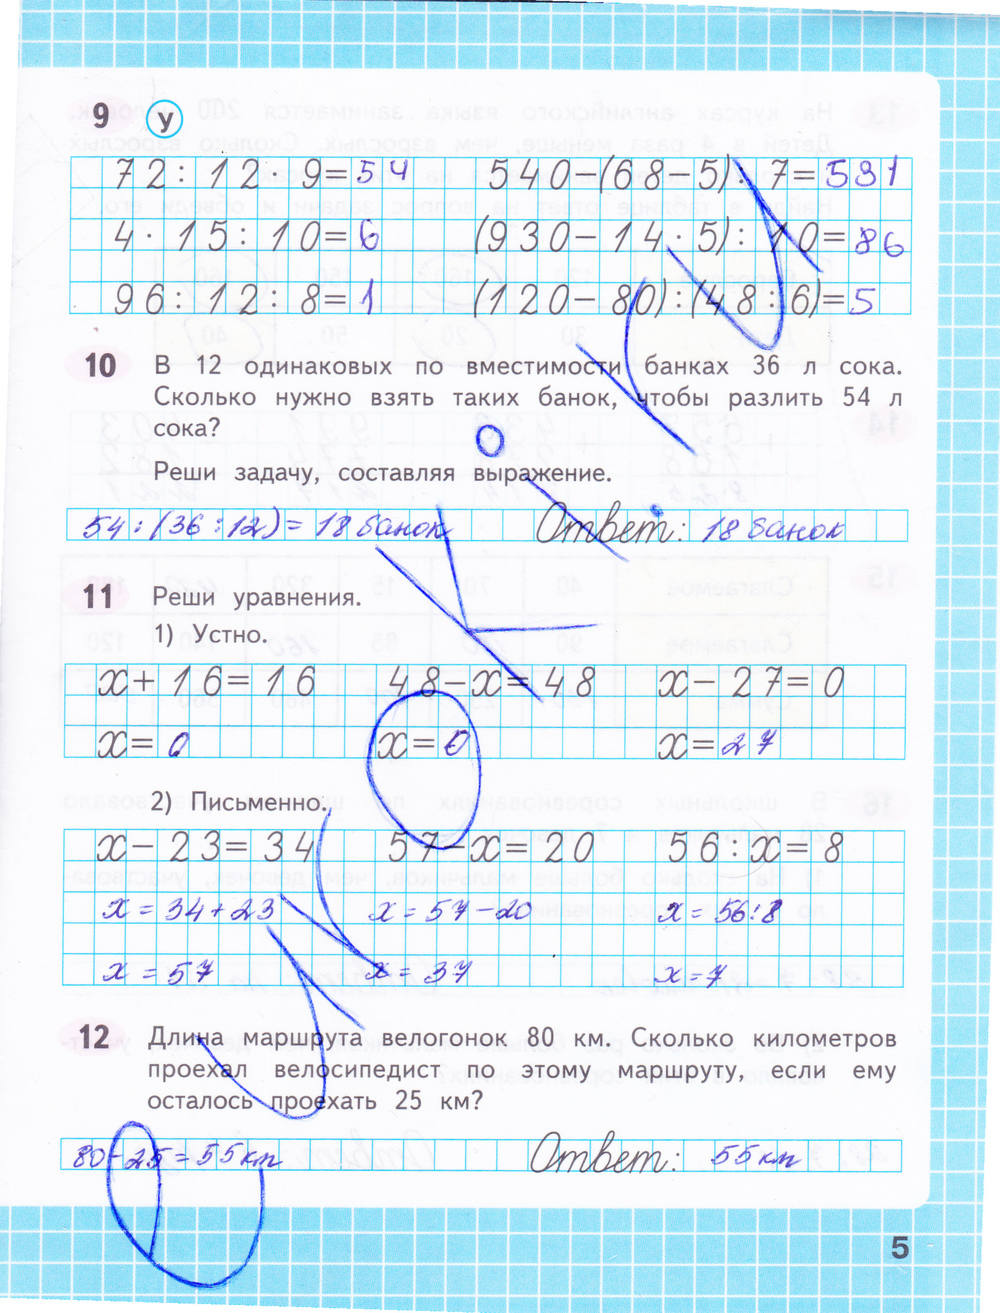 9 У
72 : 12 · 9 = 54 540 - (68 - 5) : 7 = 531
4 · 15 : 10 = 6 (930 - 14 · 5) : 10 = 86
96 : 12 : 8 = 1 (120 - 80) : (48 : 6) = 5
10 В 12 одинаковых по вместимости банках 36 л сока.
Сколько нужно взять таких банок, чтобы разлить 54 л
сока?
Реши задачу, составляя выражение.
54 : (36 : 12) = 18 банок Ответ: 18 банок
11 Реши уравнения.
1) Устно.
x + 16 = 16 48 - x = 48 x - 27 = 0
x = 0 x = 0 x = 27
2) Письменно.
x - 23 = 34 57 - x = 20 56 : x = 8
x = 34 + 23 x = 57 - 20 x = 56 : 8
x = 57 x = 37 x = 7
12 Длина маршрута велогонок 80 км. Сколько километров
проехал велосипедист по этому маршруту, если ему
осталось проехать 25 км?
80 - 25 = 55 км Ответ: 55 км
5